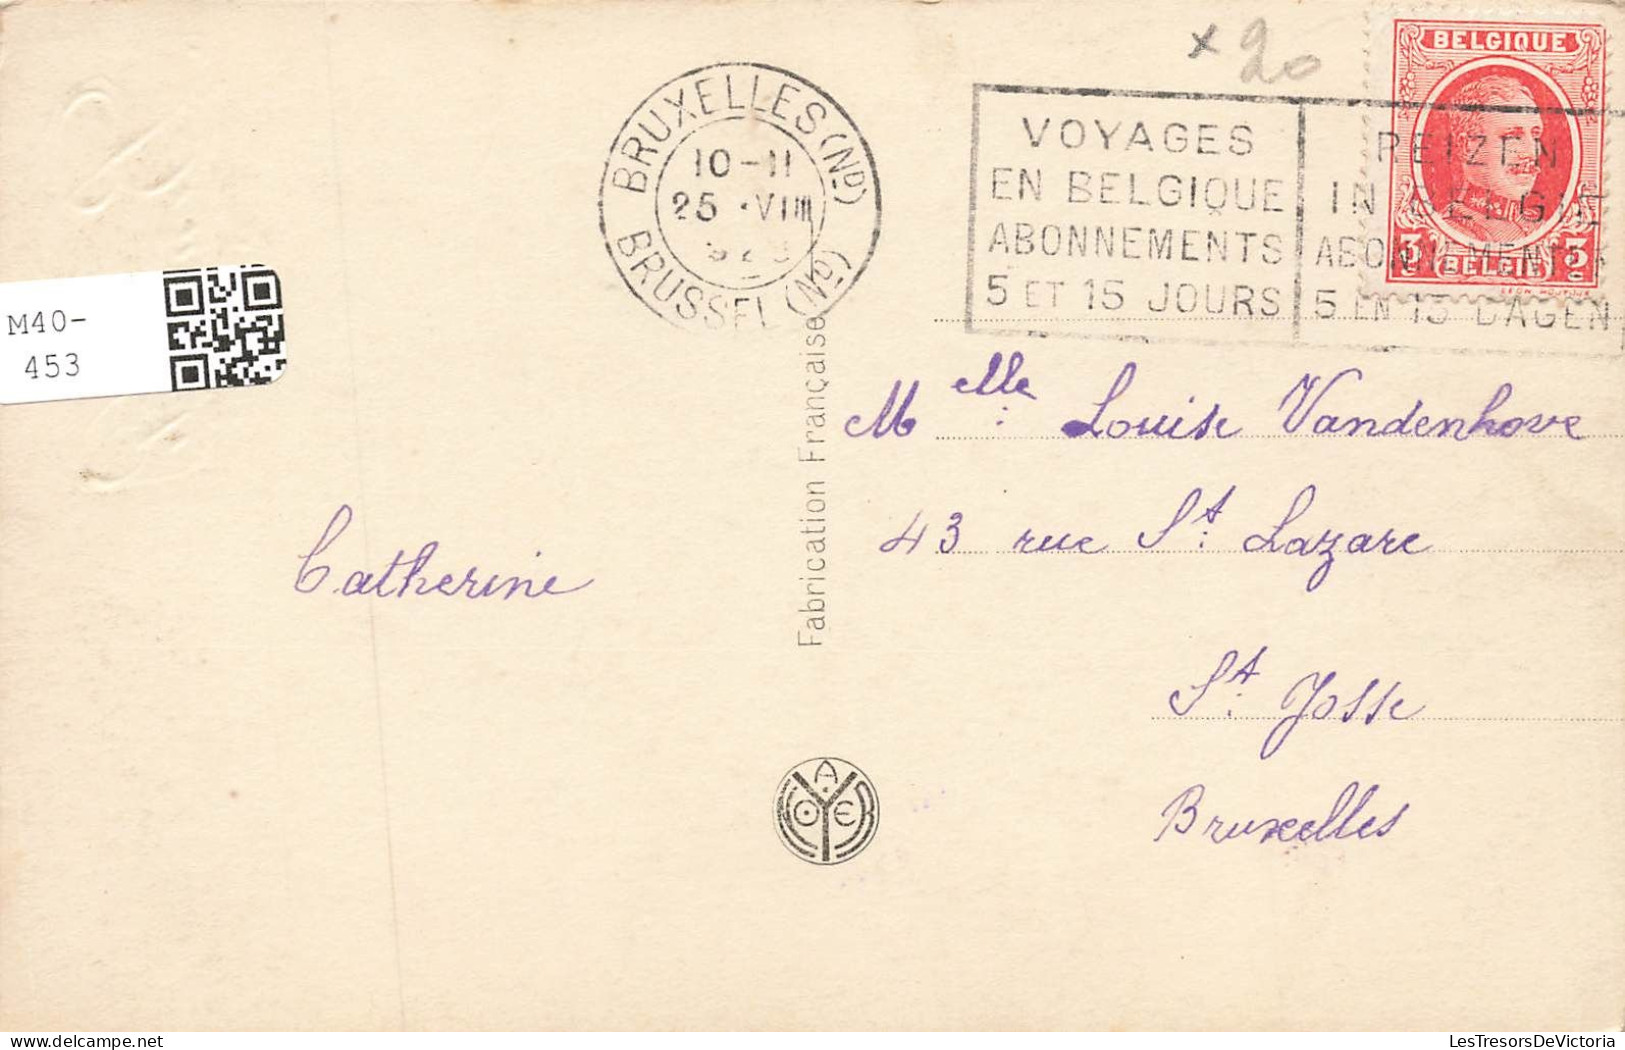 × 20
BELGIQUE
BRUXELLES (ND)
10-11
25 · VIII
BRUSSEL (ND)
VOYAGES
EN BELGIQUE
ABONNEMENTS
5 ET 15 JOURS
REIZEN
IN BELGIE
ABONNEMENTEN
5 EN 15 DAGEN
(BELGIË)
M40-
453
Fabrication Française
Melle Louise Vandenhove
43 rue St. Lazare
Catherine
St. Josse
Bruxelles
LesTresorsDeVictoria